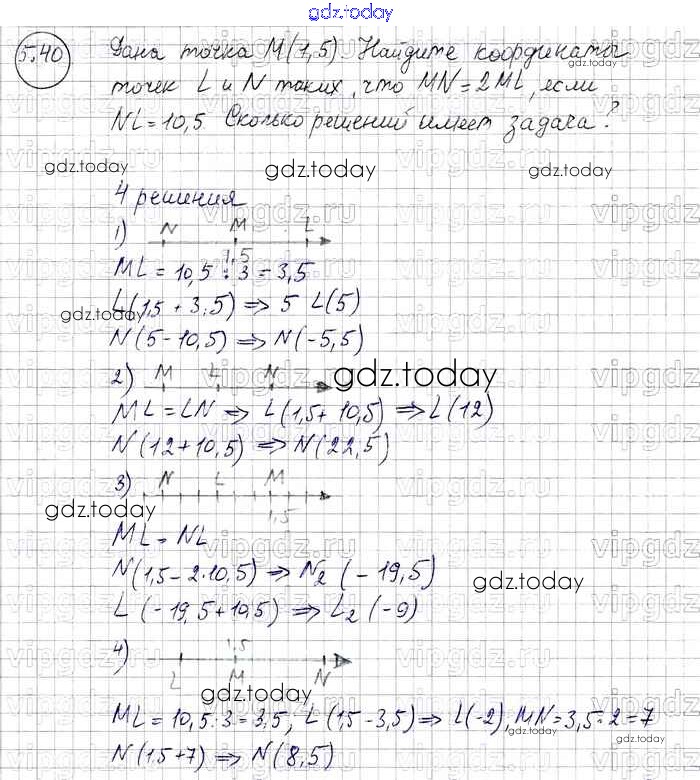 gdz.today
5.40 Дана точка M(1,5). Найдите координаты
gdz.today
точек L и N таких, что MN=2ML, если
NL=10,5. Сколько решений имеет задача?
gdz.today gdz.today gdz.today
4 решения
1) N M L
1,5
ML = 10,5 : 3 = 3,5
L(1,5 + 3,5) ⇒ 5 L(5)
gdz.today
N(5-10,5) ⇒ N(-5,5)
2) M L N gdz.today
ML = LN ⇒ L(1,5+10,5) ⇒ L(12)
N(12+10,5) ⇒ N(22,5)
3) N L M
1,5
gdz.today
ML = NL
N(1,5-2·10,5) ⇒ N₂(-19,5)
gdz.today
L(-19,5+10,5) ⇒ L₂(-9)
4) 1,5
L M N
gdz.today
ML = 10,5:3=3,5, L(1,5-3,5) ⇒ L(-2), MN=3,5·2=7
N(1,5+7) ⇒ N(8,5)
gdz.today
vipgdz.ru